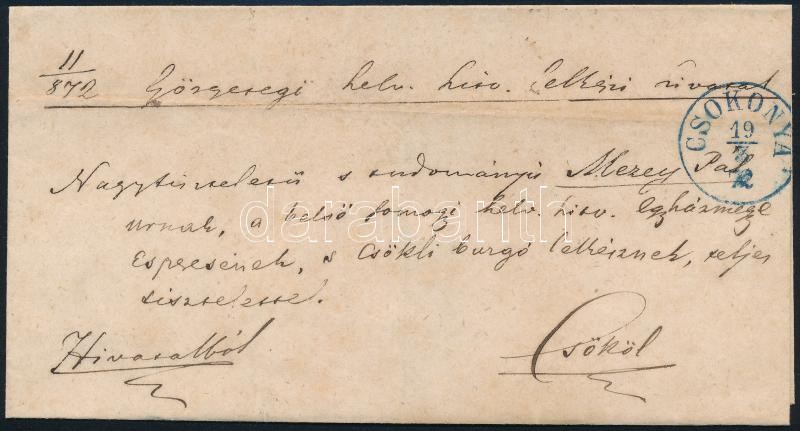 11
872 Görgetegi helv. hitv. lelkészi hivatal
CSOKONYA
19
3
72
Nagytiszteletű s tudományú Mezey Pál
urnak, a belső somogyi helv. hitv. egyházmegye
Esperesének, s Csökli buzgó lelkésznek, teljes
tisztelettel.
Hivatalból
Csököl
darabanth